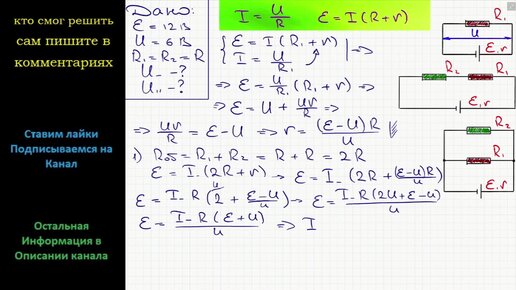 кто смог решить
сам пишите в
комментариях
Ставим лайки
Подписываемся на
Канал
Остальная
Информация в
Описании канала
Дано:
ε = 12 В
U = 6 В
R₁ = R₂ = R
U₋ - ?
U₌ - ?
I = U/R   ε = I(R + r)
{ ε = I(R₁ + r)
{ I = U/R₁ ⇒
⇒ ε = U/R₁ (R₁ + r) ⇒
⇒ ε = U + Ur/R ⇒
⇒ Ur/R = ε - U ⇒ r = (ε - U)R/U
1) Rоб = R₁ + R₂ = R + R = 2R
ε = I₋(2R + r) → ε = I₋(2R + (ε - U)R/U)
ε = I₋R(2 + (ε - U)/U) → ε = I₋R(2U + ε - U)/U
ε = I₋R(ε + U)/U ⇒ I
R₁
U
ε, r
R₂ R₁
ε, r
R₂
R₁
ε, r